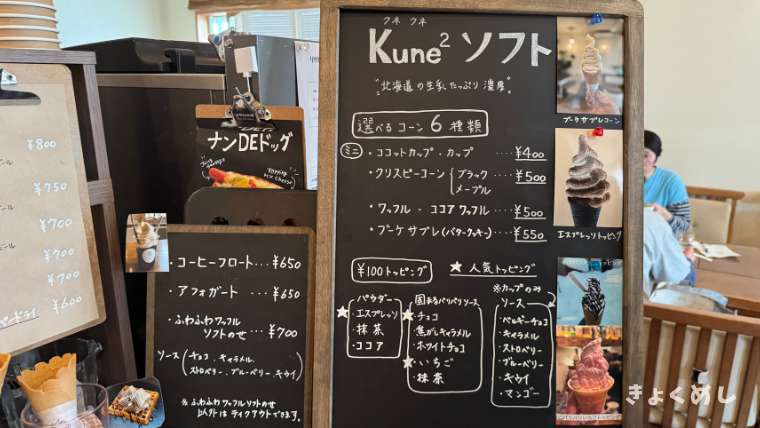 ¥800
¥750
¥700
¥700
¥700
¥600
ナンDEドッグ
・コーヒーフロート・・・¥650
・アフォガード・・・¥650
・ふわふわワッフル
ソフトのせ・・・¥700
ソース(チョコ、キャラメル、
ストロベリー、ブルーベリー、キウイ)
※ふわふわワッフルソフトのせ
以外はテイクアウトできます。
クネ クネ
Kune² ソフト
"北海道の生乳たっぷり濃厚"
選べるコーン 6 種類
ミニ ・ココットカップ・カップ ・・・・¥400
・クリスピーコーン ブラック ・・・・¥500
メープル
・ワッフル・ココアワッフル ・・・・¥500
・ブーケサブレ(バタークッキー)・・・¥550
¥100トッピング ★人気トッピング
パウダー
★・エスプレッソ
・抹茶
・ココア
固まるパリパリソース
★・チョコ
・焦がしキャラメル
・ホワイトチョコ
★・いちご
・抹茶
※カップのみ
ソース
・ベルギーチョコ
・キャラメル
・ストロベリー
・ブルーベリー
・キウイ
・マンゴー
ブーケサブレコーン
エスプレッソトッピング
きょくめし